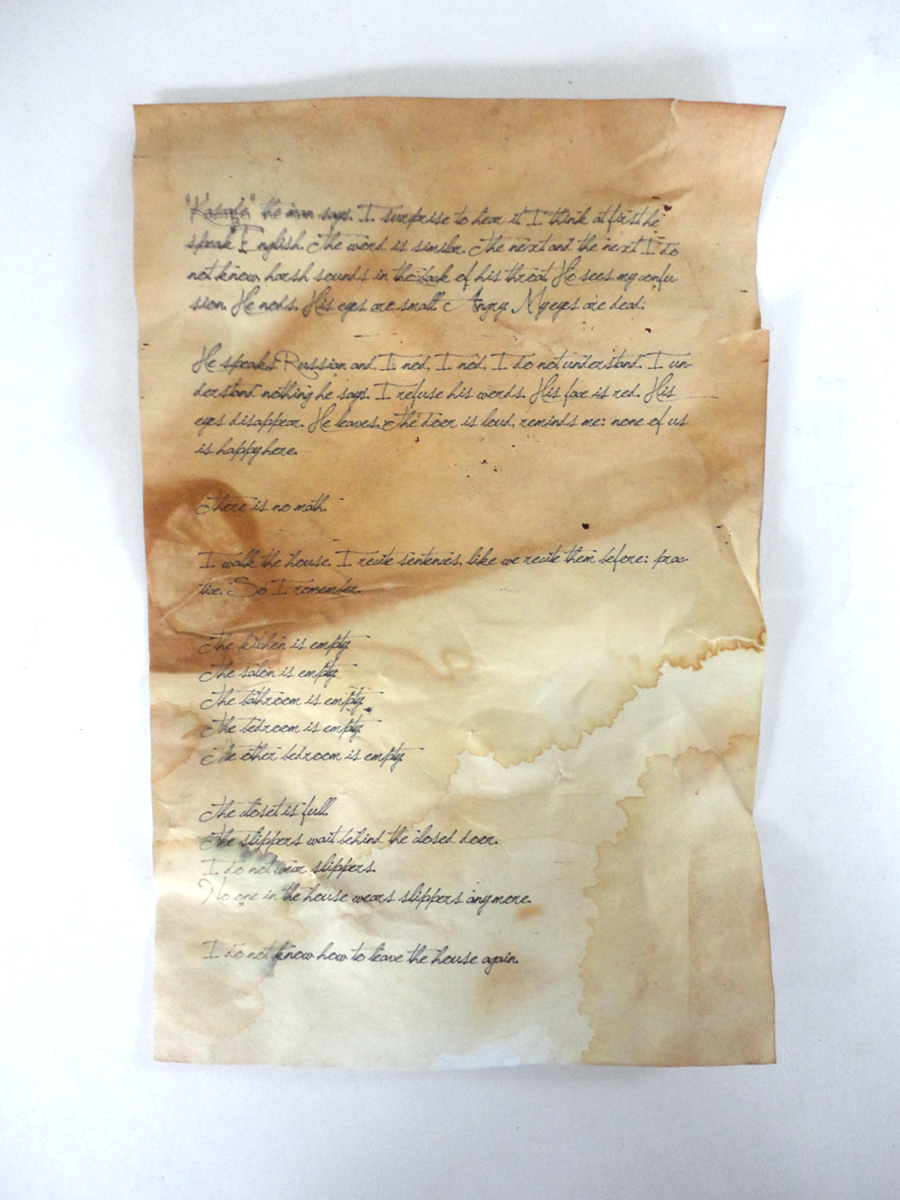 "Kasafa" the man says. I surprise to hear it. I think at first he
speak English. The word is similar. The next and the next I do
not know, harsh sounds in the back of his throat. He sees my confu-
sion. He nods. His eyes are small. Angry. My eyes are dead.
He speaks Russian and I nod, I nod, I do not understand. I un-
derstand nothing he says. I refuse his words. His face is red. His
eyes disappear. He leaves. The door is loud, reminds me: none of us
is happy here.
There is no math.
I walk the house. I recite sentences, like we recite them before: prac-
tice. So I remember.
The kitchen is empty.
The salon is empty.
The bathroom is empty.
The bedroom is empty.
The other bedroom is empty.
The closet is full.
The slippers wait behind the closed door.
I do not wear slippers.
No one in the house wears slippers anymore.
I do not know how to leave the house again.